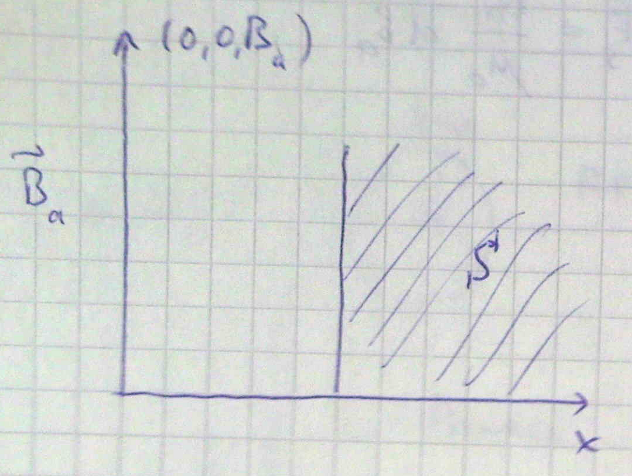 (0,0,B_a)
\vec{B}_a
S
x